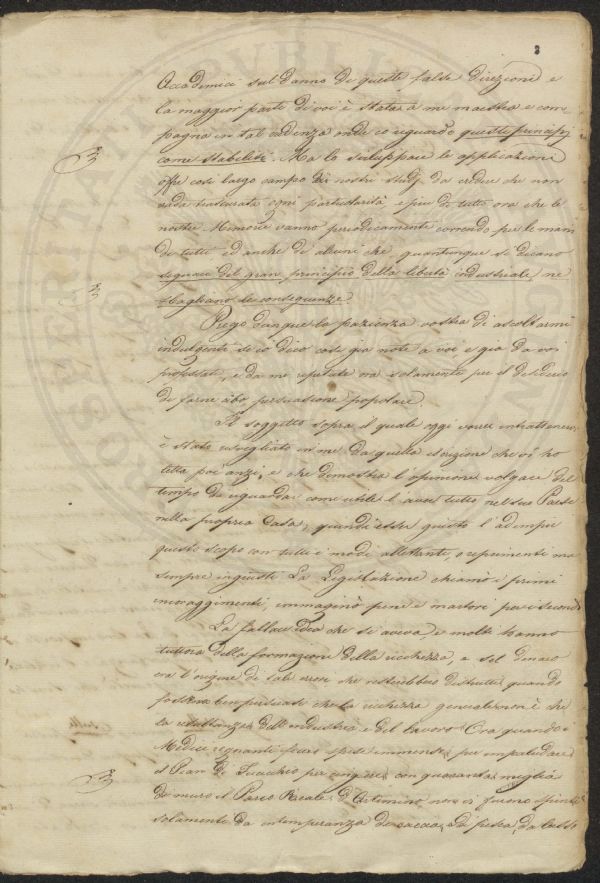 3
Accademici sul danno di queste false direzioni e
la maggior parte di voi è stata a me maestra e com-
pagna in tal credenza onde io riguardo questi principj
come stabiliti. Ma lo sviluppare le applicazioni
offre così largo campo ai nostri studj da credere che non
vada trascurata ogni particolarità e più di tutto ora che le
nostre Memorie vanno periodicamente correndo per le mani
di tutti ed anche di alcuni che quantunque si dicano
seguaci del gran principio della libertà industriale, ne
sbagliano le conseguenze.
Prego dunque la pazienza vostra di ascoltarmi
indulgente se io dico cose già note a voi, e già da voi
professate, e da me ripetute ora solamente per il desiderio
di farne persuasione popolare.
Il soggetto sopra il quale oggi vorrei intrattenervi
è stato risvegliato in me da quella iscrizione che vi ho
letta poc'anzi, e che dimostra l'opinione volgare del
tempo di riguardar come utile l'aver tutto nel suo Paese
nella propria Casa, quindi esser giusto l'adempir
questo scopo con tutti i modi allettanti, o reprimenti ma
sempre ingiusti. La Legislazione chiamò i primi
incoraggimenti, immaginò pene e martori per i secondi
La fallace idea che si aveva e molti hanno
tuttora della formazione della ricchezza, e del denaro
era l'origine di tale errore che resterebbero distrutti quando
fossero ben persuasi che la ricchezza generale non è che
la resultanza dell'industria e del lavoro. Ora quando i
Medici regnanti fecero spese immense per impaludare
il Pian di Fucecchio per cingere con quaranta miglia
di muro il Parco Reale d'Artimino non vi furono spinti
solamente da intemperanza di caccia, di pesca, da lusso